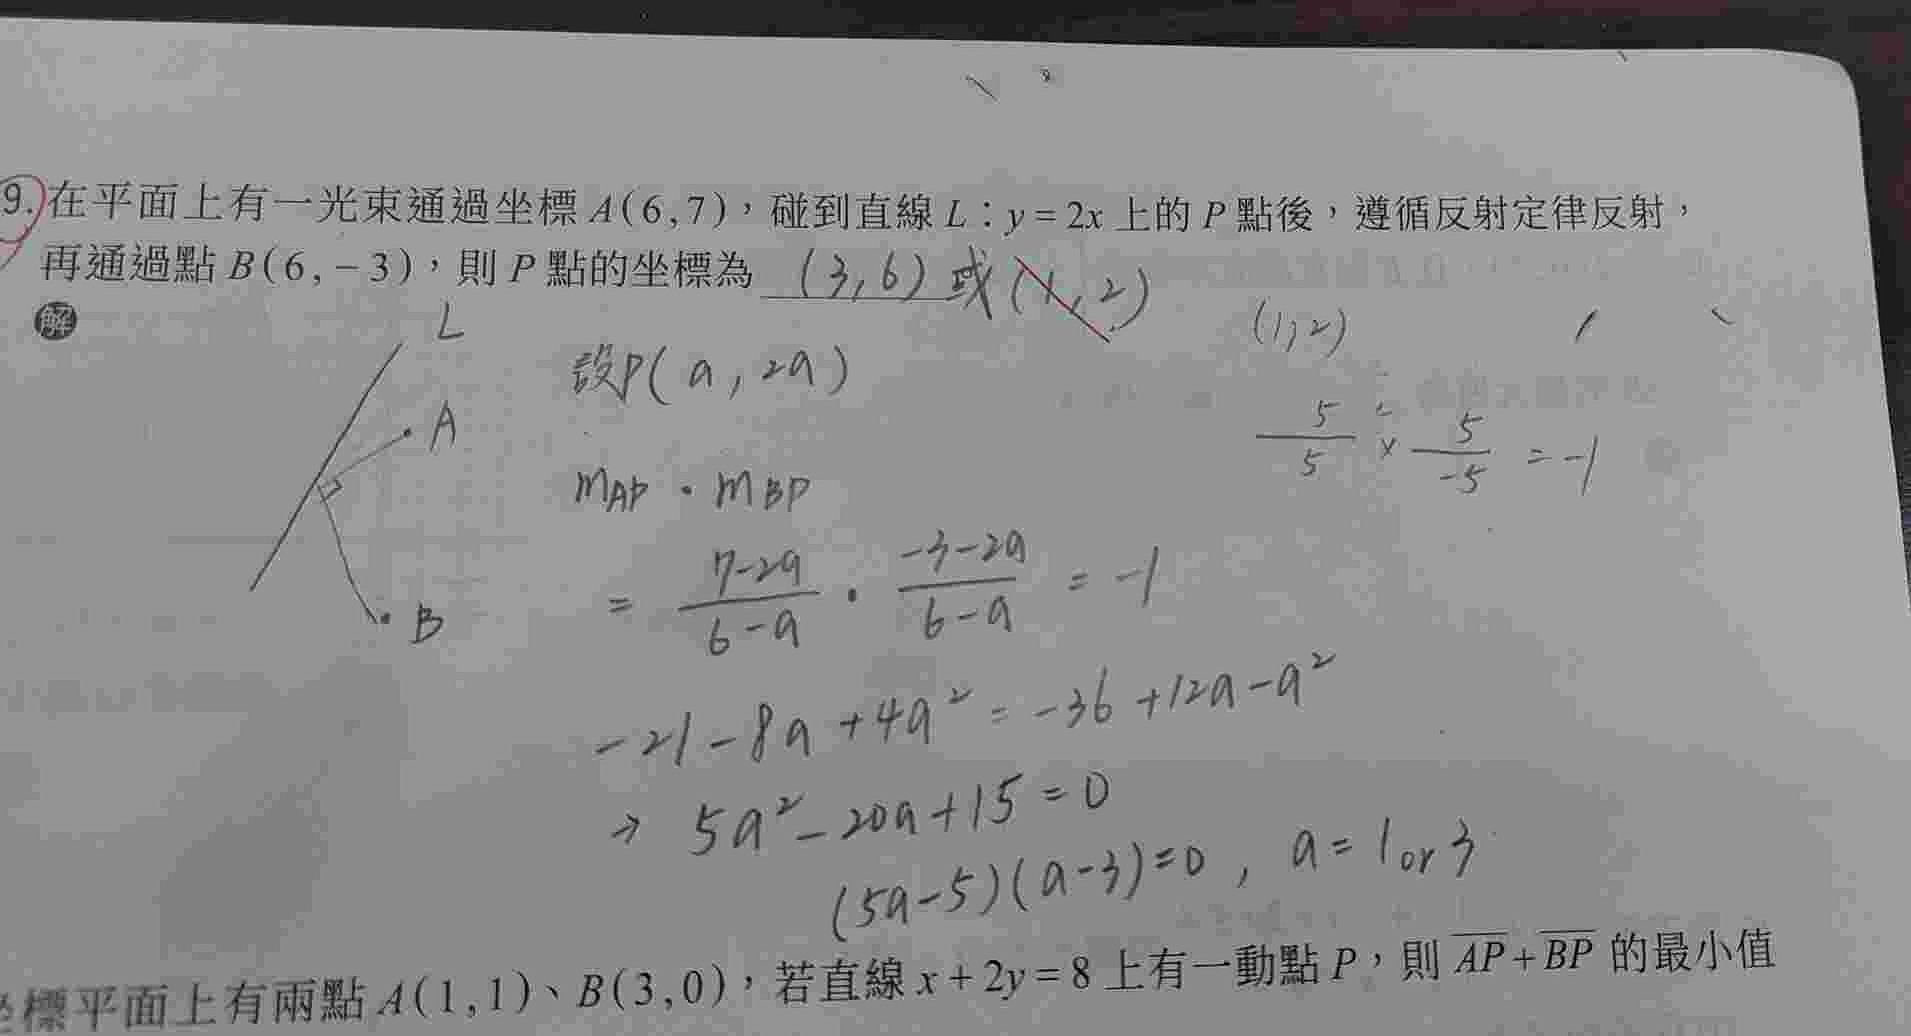 9. 在平面上有一光束通過坐標 A(6,7),碰到直線 L:y=2x 上的 P 點後,遵循反射定律反射,
再通過點 B(6,-3),則 P 點的坐標為 (3,6) 或 (1,2)
解
L
A
B
設P(a,2a)
(1,2)
5/5 × 5/-5 = -1
mAP · mBP
= (7-2a)/(6-a) · (-3-2a)/(6-a) = -1
-21-8a+4a² = -36+12a-a²
→ 5a²-20a+15=0
(5a-5)(a-3)=0, a=1 or 3
坐標平面上有兩點 A(1,1)、B(3,0),若直線 x+2y=8 上有一動點 P,則 AP+BP 的最小值